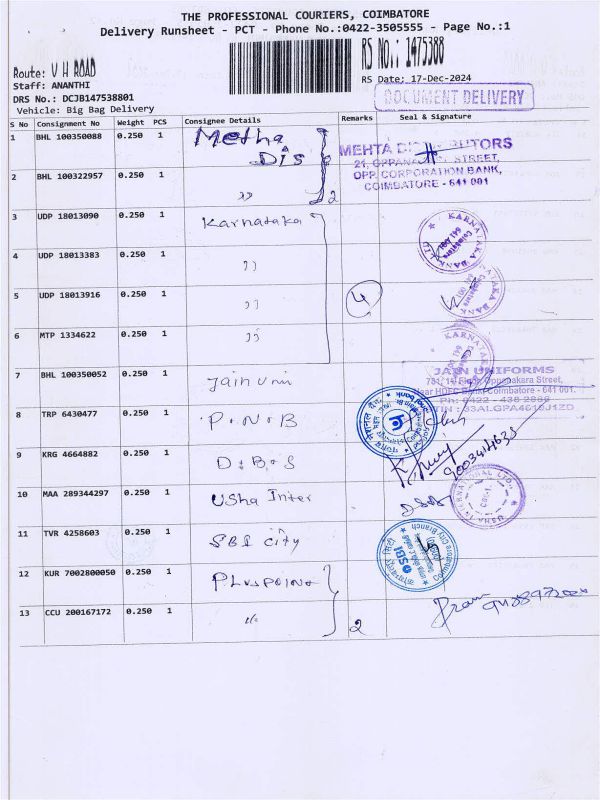 THE PROFESSIONAL COURIERS, COIMBATORE
Delivery Runsheet - PCT - Phone No.:0422-3505555 - Page No.:1
RS No.: 1475388
Route: V H ROAD
Staff: ANANTHI
RS Date: 17-Dec-2024
DRS No.: DCJB147538801
DOCUMENT DELIVERY
Vehicle: Big Bag Delivery
S No Consignment No Weight PCS Consignee Details Remarks Seal & Signature
1 BHL 100350088 0.250 1 Metha Dis
MEHTA DISTRIBUTORS
21, OPPANA STREET,
OPP. CORPORATION BANK,
COIMBATORE - 641 001
2 BHL 100322957 0.250 1 ,, 2
3 UDP 18013090 0.250 1 Karnataka
KARNATAKA BANK LTD
Coimbatore
4 UDP 18013383 0.250 1 ,,
5 UDP 18013916 0.250 1 ,, 4
6 MTP 1334622 0.250 1 ,,
KARNATAKA
7 BHL 100350052 0.250 1 Jain Uni
JAIN UNIFORMS
Oppanakara Street,
Near HDFC Bank, Coimbatore - 641 001.
Ph: 0422 - 438 2866
8 TRP 6430477 0.250 1 P.N.B
9 KRG 4664882 0.250 1 D.B.S
9003414635
10 MAA 289344297 0.250 1 Usha Inter
INTERNATIONAL LTD.
11 TVR 4258603 0.250 1 SBI City
SBI
Coimbatore City Branch
12 KUR 7002800050 0.250 1 Pluspoint
13 CCU 200167172 0.250 1 ,, 2